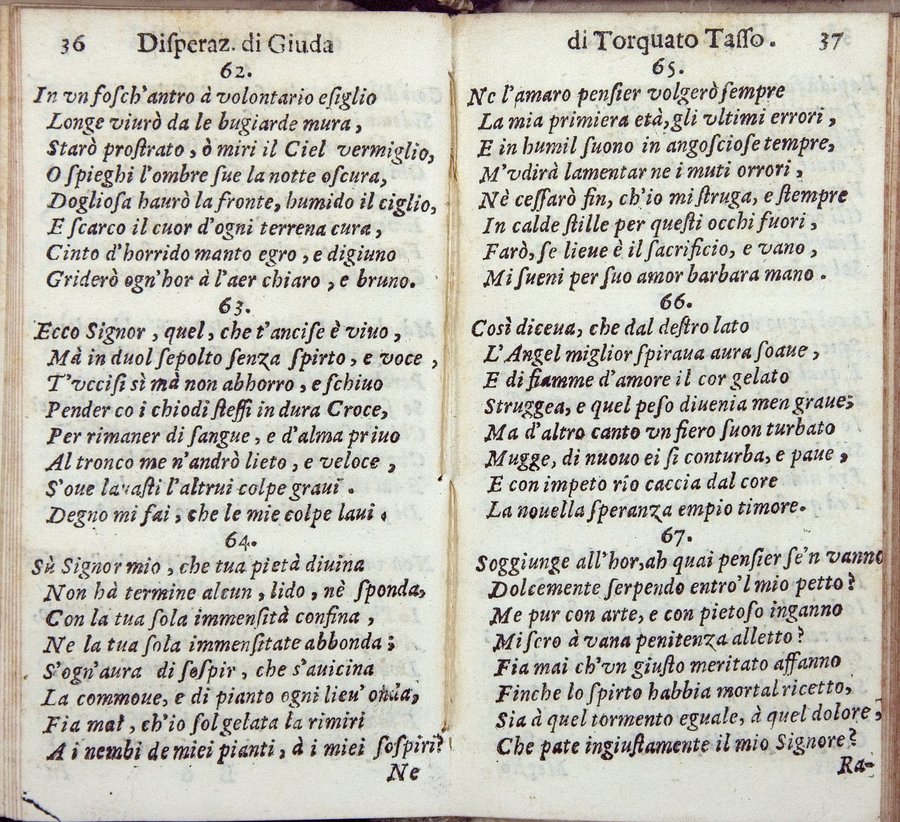 36 Diſperaz. di Giuda
62.
In vn foſch'antro à volontario eſiglio
Longe viurò da le bugiarde mura,
Starò proſtrato, ò miri il Ciel vermiglio,
O ſpieghi l'ombre ſue la notte oſcura,
Doglioſa haurò la fronte, humido il ciglio,
E ſcarco il cuor d'ogni terrena cura,
Cinto d'horrido manto egro, e digiuno
Griderò ogn'hor à l'aer chiaro, e bruno.
63.
Ecco Signor, quel, che t'anciſe è viuo,
Mà in duol ſepolto ſenza ſpirto, e voce,
T'vcciſi sì mà non abhorro, e ſchiuo
Pender co i chiodi ſteſſi in dura Croce,
Per rimaner di ſangue, e d'alma priuo
Al tronco me n'andrò lieto, e veloce,
S'oue lauaſti l'altrui colpe graui.
Degno mi fai, che le mie colpe laui.
64.
Sù Signor mio, che tua pietà diuina
Non hà termine alcun, lido, nè ſponda,
Con la tua ſola immenſità confina,
Ne la tua ſola immenſitate abbonda;
S'ogn'aura di ſoſpir, che s'auicina
La commoue, e di pianto ogni lieu' onda,
Fia mai, ch'io ſol gelata la rimiri
A i nembi de miei pianti, à i miei ſoſpiri?
Ne
di Torquato Taſſo. 37
65.
Ne l'amaro penſier volgerò ſempre
La mia primiera età, gli vltimi errori,
E in humil ſuono in angoſcioſe tempre,
M'vdirà lamentar ne i muti orrori,
Nè ceſſarò fin, ch'io mi ſtruga, e ſtempre
In calde ſtille per queſti occhi fuori,
Farò, ſe lieue è il ſacrificio, e vano,
Mi ſueni per ſuo amor barbara mano.
66.
Così diceua, che dal deſtro lato
L'Angel miglior ſpiraua aura ſoaue,
E di fiamme d'amore il cor gelato
Struggea, e quel peſo diuenia men graue;
Ma d'altro canto vn fiero ſuon turbato
Mugge, di nuouo ei ſi conturba, e paue,
E con impeto rio caccia dal core
La nouella ſperanza empio timore.
67.
Soggiunge all'hor, ah quai penſier ſe'n vanno
Dolcemente ſerpendo entro'l mio petto?
Me pur con arte, e con pietoſo inganno
Miſero à vana penitenza alletto?
Fia mai ch'vn giuſto meritato affanno
Finche lo ſpirto habbia mortal ricetto,
Sia à quel tormento eguale, à quel dolore,
Che pate ingiuſtamente il mio Signore?
Ra-